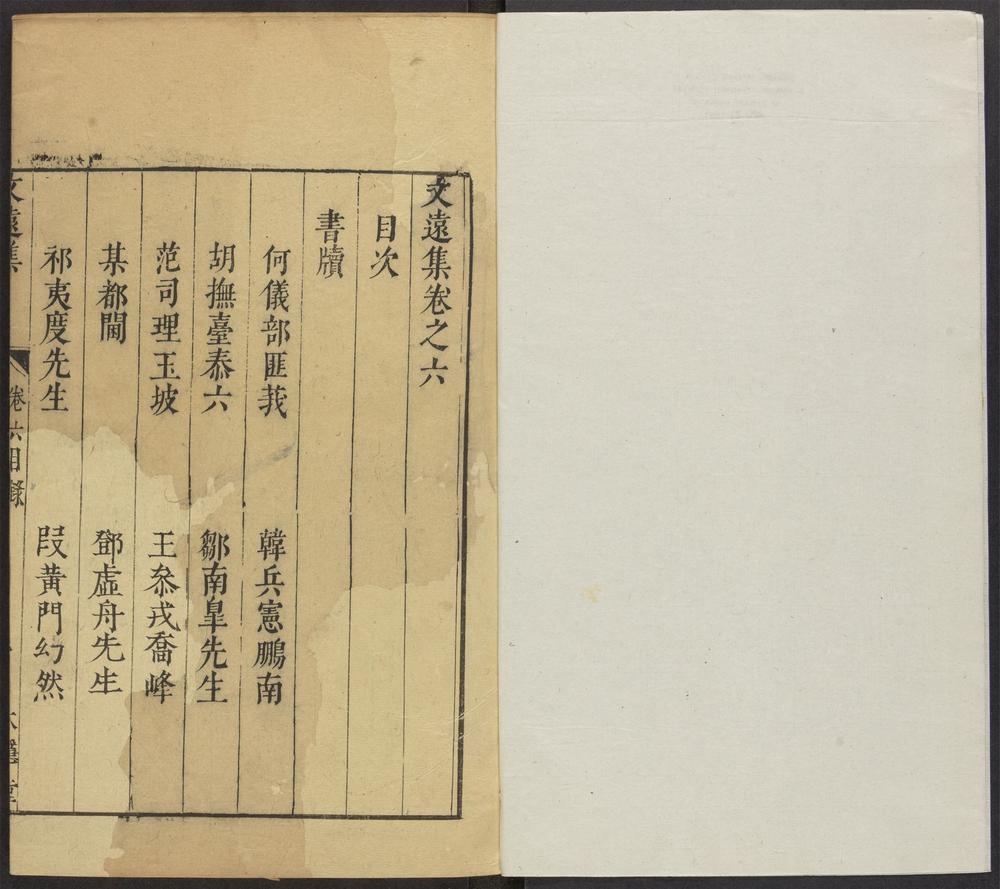 文遠集卷之六
目次
書牘
何儀部匪莪
韓兵憲鵬南
胡撫臺泰六
鄒南臯先生
范司理玉坡
王叅戎喬峰
某都閫
鄧虛舟先生
祁夷度先生
段黃門幻然
文遠集
卷六目錄